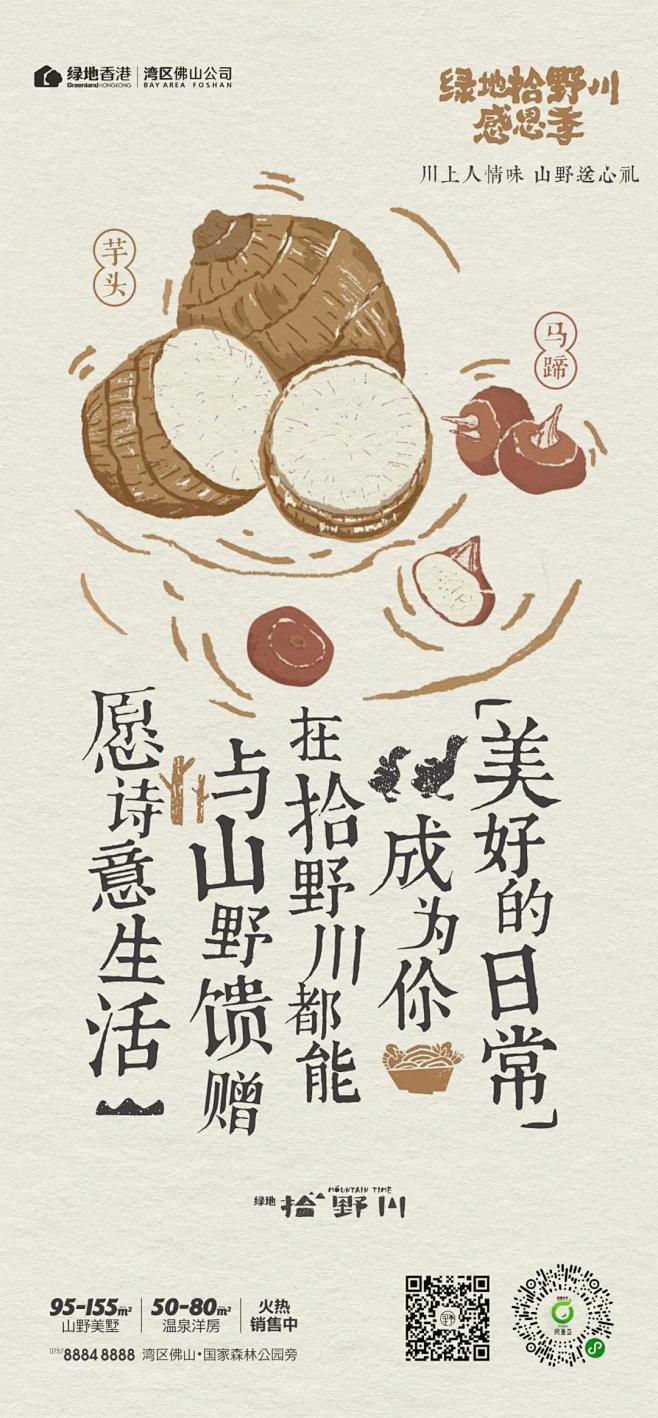 绿地香港 湾区佛山公司
Greenland HONGKONG BAY AREA FOSHAN
绿地拾野川
感恩季
川上人情味 山野送心礼
芋头
马蹄
愿诗意生活
与山野馈赠
在拾野川都能
成为你
「美好的日常」
MOUNTAIN TIME
绿地 拾野川
95-155m² 50-80m² 火热
山野美墅 温泉洋房 销售中
0757 8884 8888 湾区佛山·国家森林公园旁